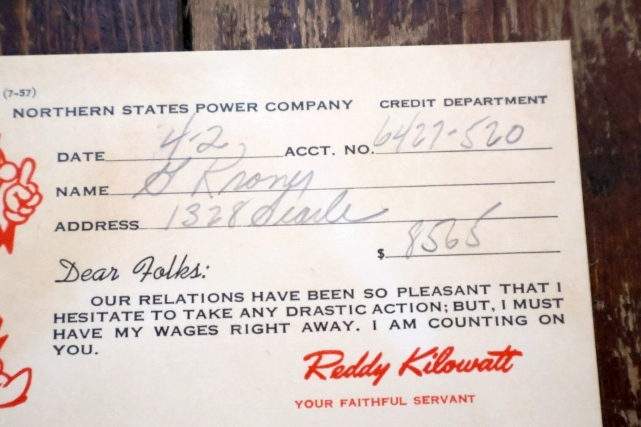 (7-57)
NORTHERN STATES POWER COMPANY CREDIT DEPARTMENT
DATE 4-2 ACCT. NO. 6427-520
NAME G Krony
ADDRESS 1328 Searle
$ 8565
Dear Folks:
OUR RELATIONS HAVE BEEN SO PLEASANT THAT I
HESITATE TO TAKE ANY DRASTIC ACTION; BUT, I MUST
HAVE MY WAGES RIGHT AWAY. I AM COUNTING ON
YOU.
Reddy Kilowatt
YOUR FAITHFUL SERVANT